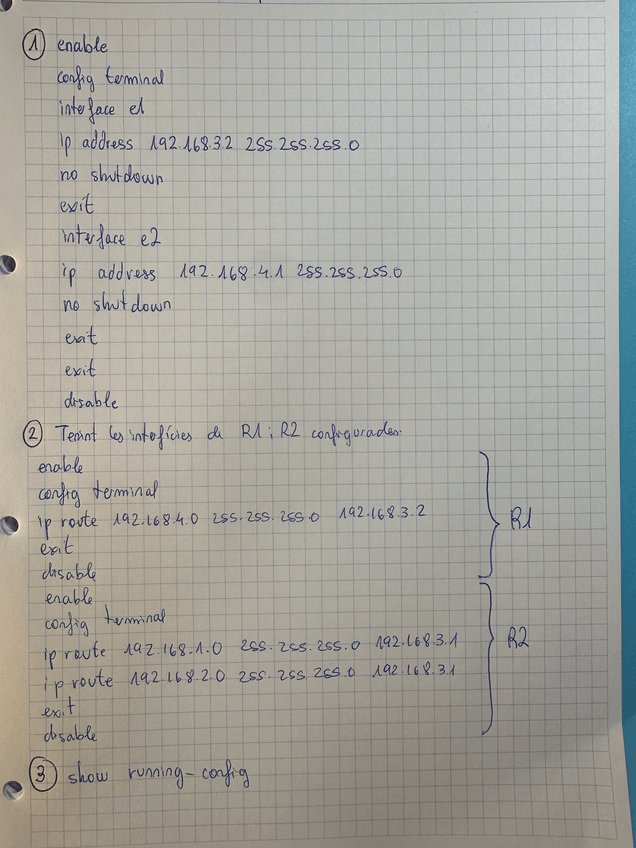 ① enable
config terminal
interface e1
ip address 192.168.3.2 255.255.255.0
no shutdown
exit
interface e2
ip address 192.168.4.1 255.255.255.0
no shutdown
exit
exit
disable
② Tenint les interfícies de R1 i R2 configurades.
enable
config terminal
ip route 192.168.4.0 255.255.255.0 192.168.3.2
exit
disable
R1
enable
config terminal
ip route 192.168.1.0 255.255.255.0 192.168.3.1
ip route 192.168.2.0 255.255.255.0 192.168.3.1
exit
disable
R2
③ show running-config